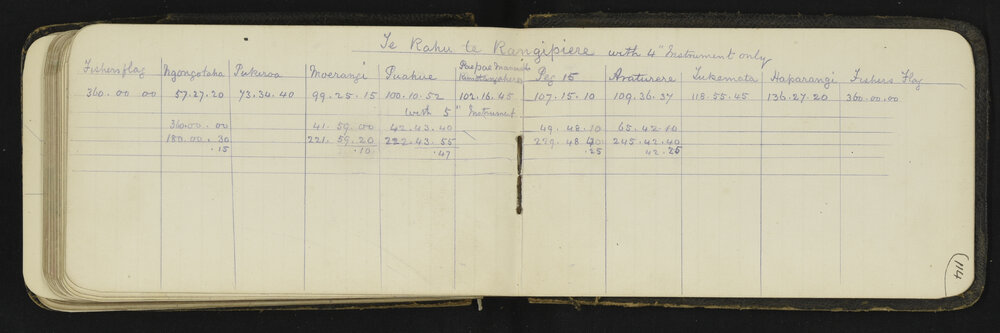 Te Kahu te Rangipiere with 4" Instrument only
Fishers flag Ngongotaha Pukuroa Moerangi Puakue Paepae Peg 15 Araturere Tukemata Haparangi Fishers Flag
360.00 00 57.27.20 73.34.40 99.25.15 100.10.52 102.16.45 107.15.10 109.36.37 118.55.45 136.27.20 360.00.00
with 5" Instrument
360.00.00 41.59.00 42.43.40 49.48.10 65.42.10
180.00.30 221.59.20 222.43.55 229.48 245.42.40
.15 .10 .47 .25 42.25
114